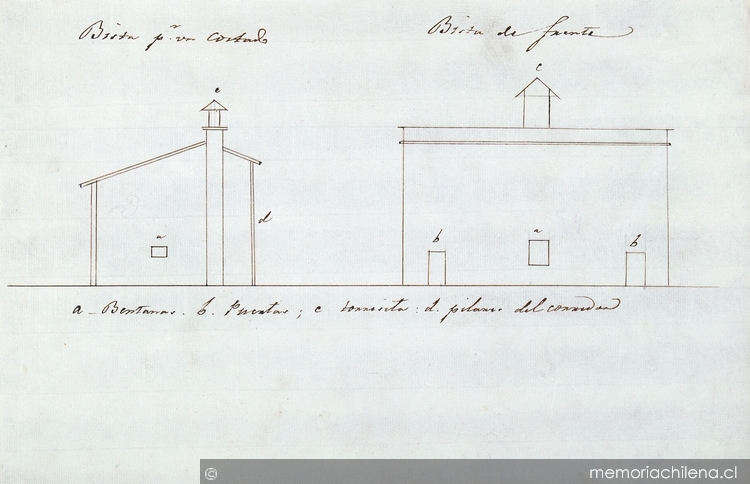 Bista pr. un costado
Bista de frente
c
c
a
d
b
a
b
a - Bentanas. b. Puertas; c torresita: d. pilares del corredor
© memoriachilena.cl